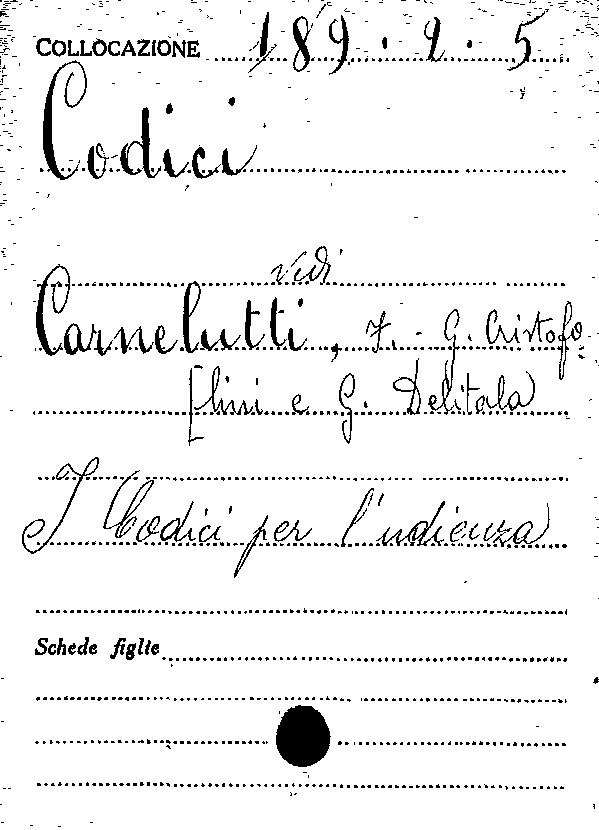 COLLOCAZIONE 189.2.5
Codici
vedi
Carnelutti, F. - G. Cristofo
[lini e G. Delitala
I Codici per l'udienza
Schede figlie